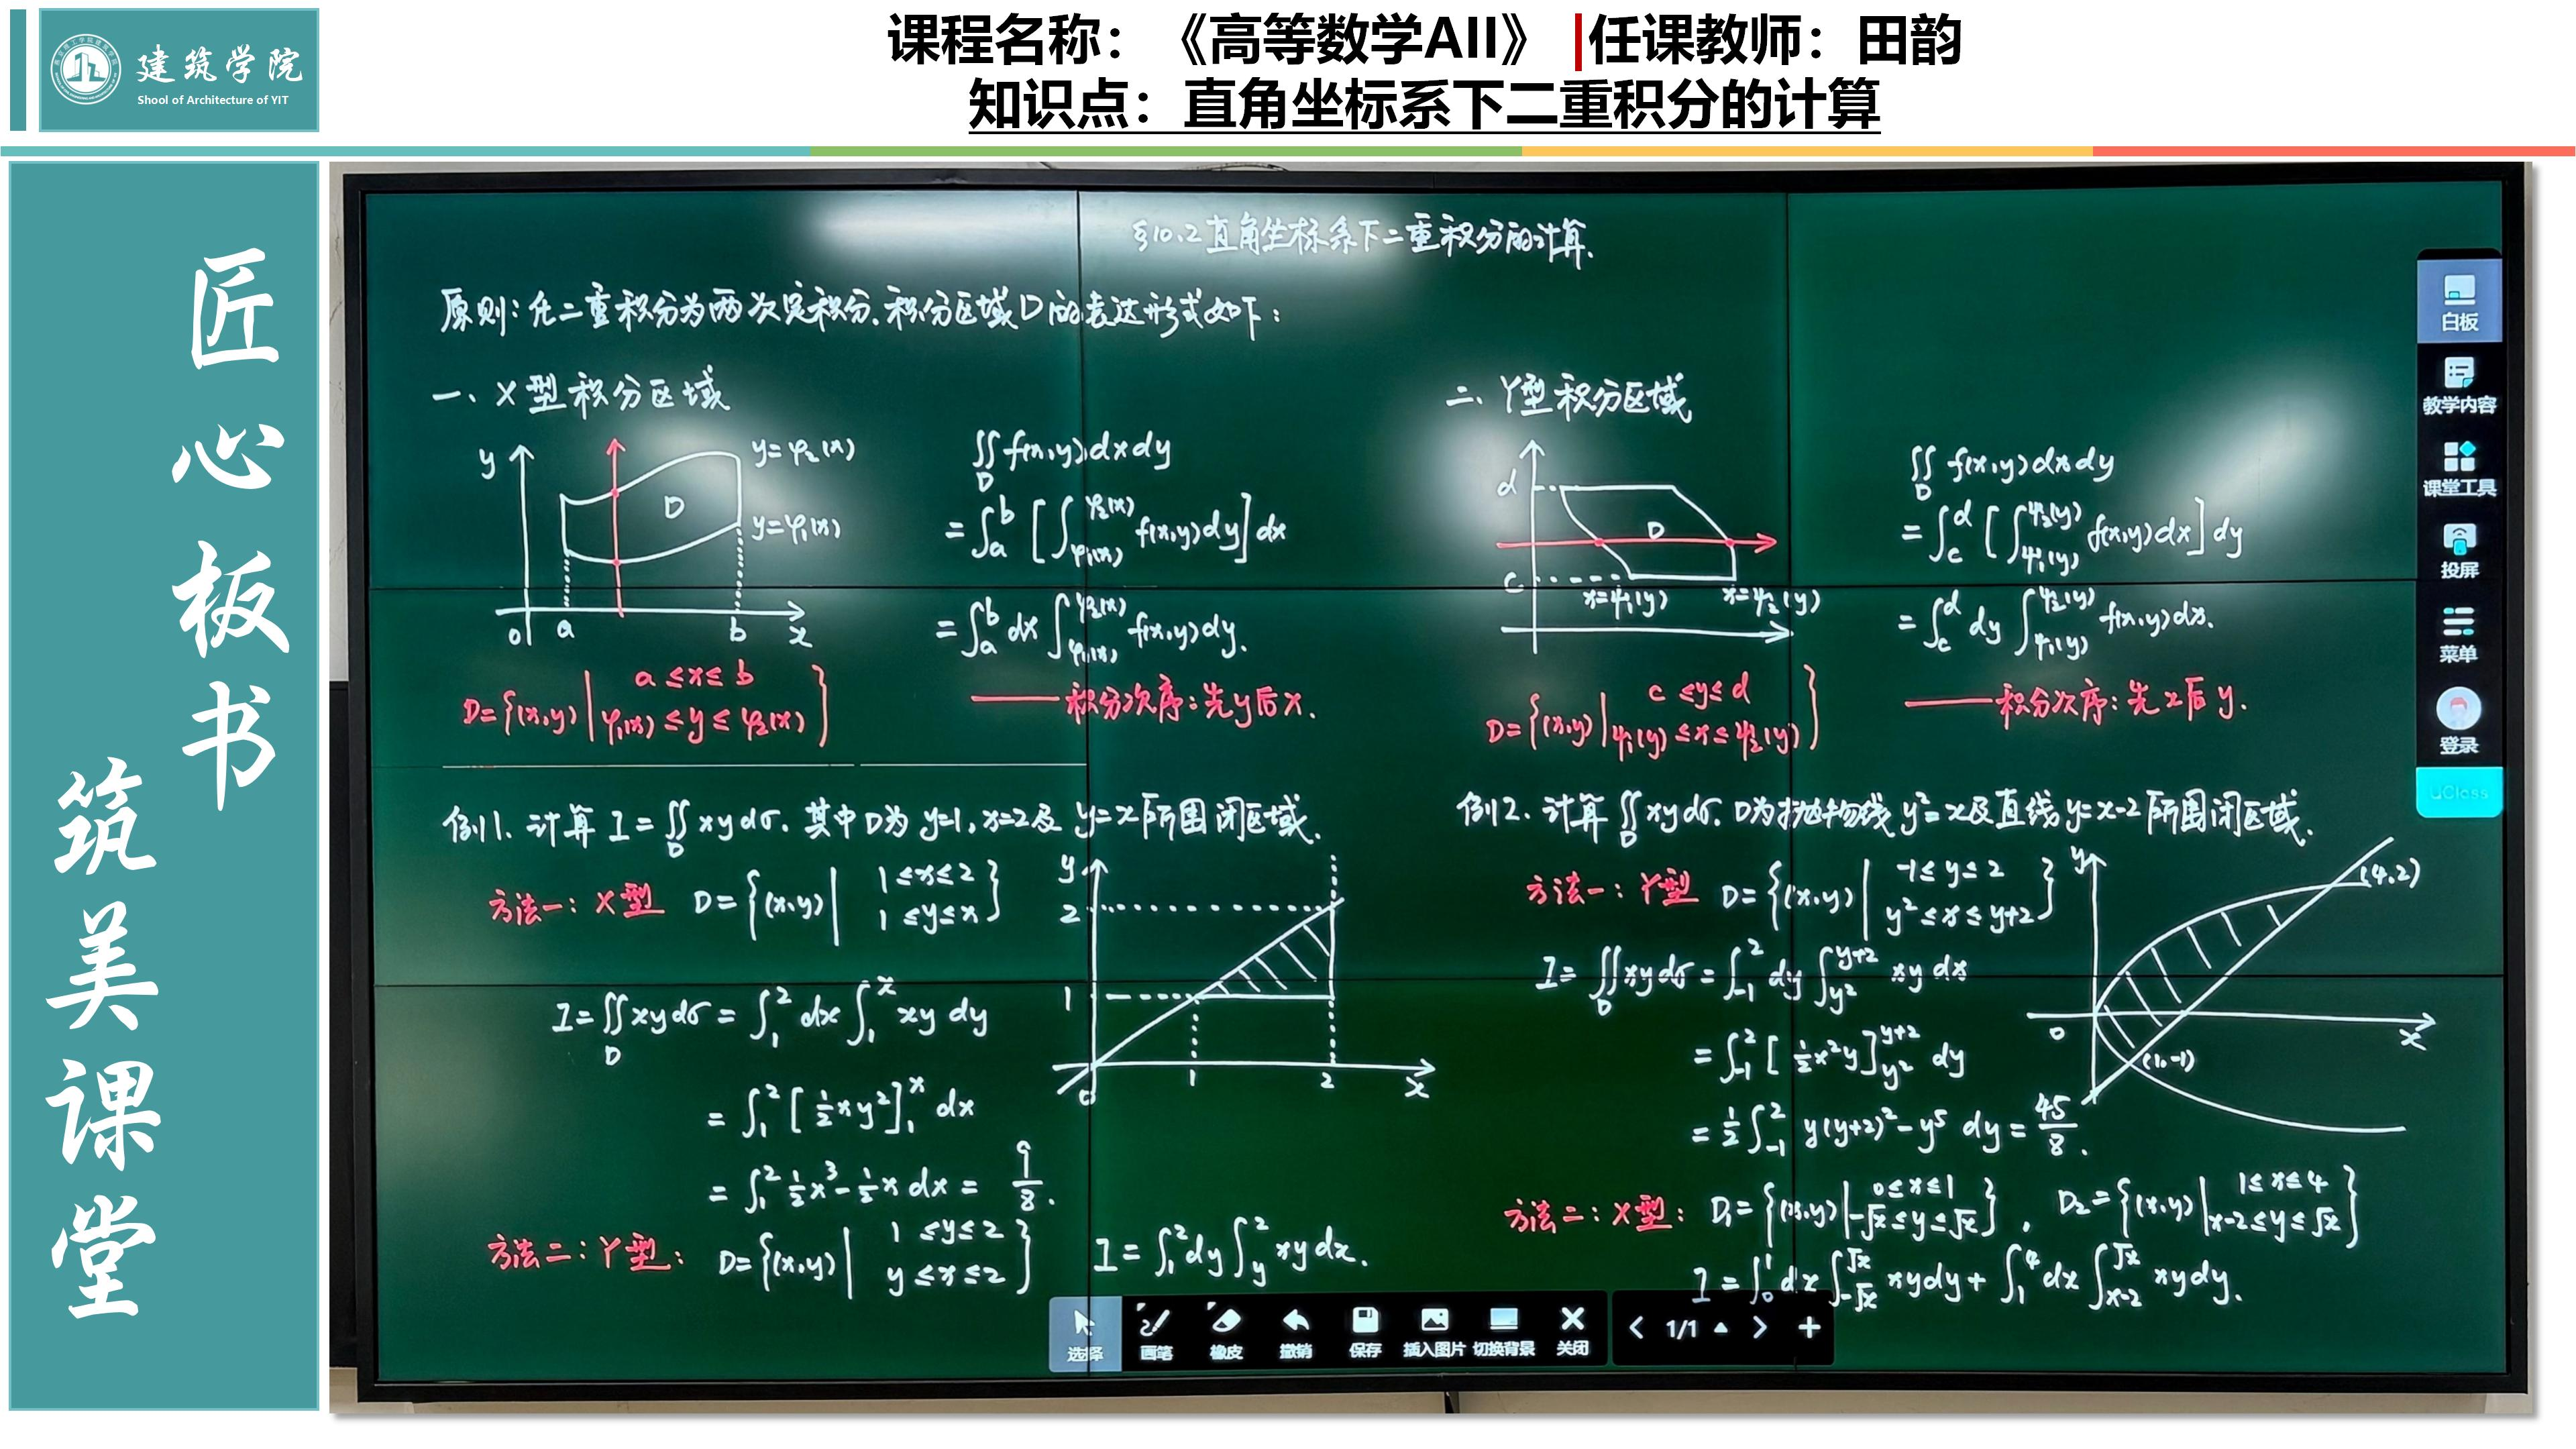 建筑学院
Shool of Architecture of YIT
课程名称：《高等数学AII》|任课教师：田韵
知识点：直角坐标系下二重积分的计算
匠心板书
筑美课堂
§10.2 直角坐标系下二重积分的计算.
原则：化二重积分为两次定积分.积分区域D的表达形式如下：
一、X型积分区域
y
y=φ₂(x)
D
y=φ₁(x)
0 a b x
∬_D f(x,y)dxdy
=∫_a^b [∫_{φ₁(x)}^{φ₂(x)} f(x,y)dy]dx
=∫_a^b dx∫_{φ₁(x)}^{φ₂(x)} f(x,y)dy.
D={(x,y)| a≤x≤b
φ₁(x)≤y≤φ₂(x)}
——积分次序：先y后x.
二、Y型积分区域
d
D
c
x=ψ₁(y) x=ψ₂(y)
∬_D f(x,y)dxdy
=∫_c^d [∫_{ψ₁(y)}^{ψ₂(y)} f(x,y)dx]dy
=∫_c^d dy∫_{ψ₁(y)}^{ψ₂(y)} f(x,y)dx.
D={(x,y)| c≤y≤d
ψ₁(y)≤x≤ψ₂(y)}
——积分次序：先x后y.
例1.计算 I=∬_D xydσ.其中D为 y=1,x=2及 y=x所围闭区域.
方法一：X型 D={(x,y)| 1≤x≤2
1≤y≤x}
I=∬_D xydσ=∫_1^2 dx∫_1^x xy dy
=∫_1^2 [½xy²]_1^x dx
=∫_1^2 ½x³-½x dx=9/8.
y
2
1
0 1 2 x
方法二：Y型： D={(x,y)| 1≤y≤2
y≤x≤2} I=∫_1^2 dy∫_y^2 xydx.
例2.计算∬_D xydσ.D为抛物线y²=x及直线y=x-2所围闭区域.
方法一：Y型 D={(x,y)| -1≤y≤2
y²≤x≤y+2}
I=∬_D xydσ=∫_{-1}^2 dy∫_{y²}^{y+2} xy dx
=∫_{-1}^2 [½x²y]_{y²}^{y+2} dy
=½∫_{-1}^2 y(y+2)²-y⁵ dy=45/8.
y
(4,2)
0 x
(1,-1)
方法二：X型： D₁={(x,y)| 0≤x≤1
-√x≤y≤√x}, D₂={(x,y)| 1≤x≤4
x-2≤y≤√x}
I=∫_0^1 dx∫_{-√x}^{√x} xydy+∫_1^4 dx∫_{x-2}^{√x} xydy.
白板
教学内容
课堂工具
投屏
菜单
登录
uClass
选择 画笔 橡皮 撤销 保存 插入图片 切换背景 关闭 < 1/1 > +